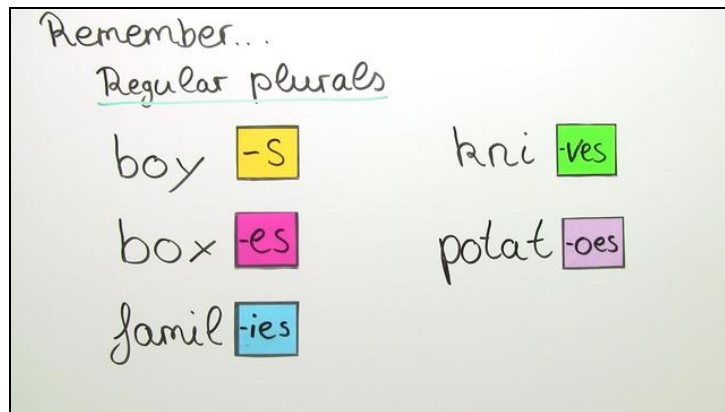 Remember...
Regular plurals
boy -s
box -es
famil -ies
kni -ves
potat -oes